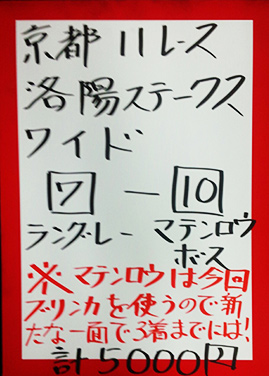 京都11レース
洛陽ステークス
ワイド
7 — 10
ラングレー マテンロウ
ボス
※マテンロウは今回
ブリンカを使うので新
たな一面で3着までには!
計5000円